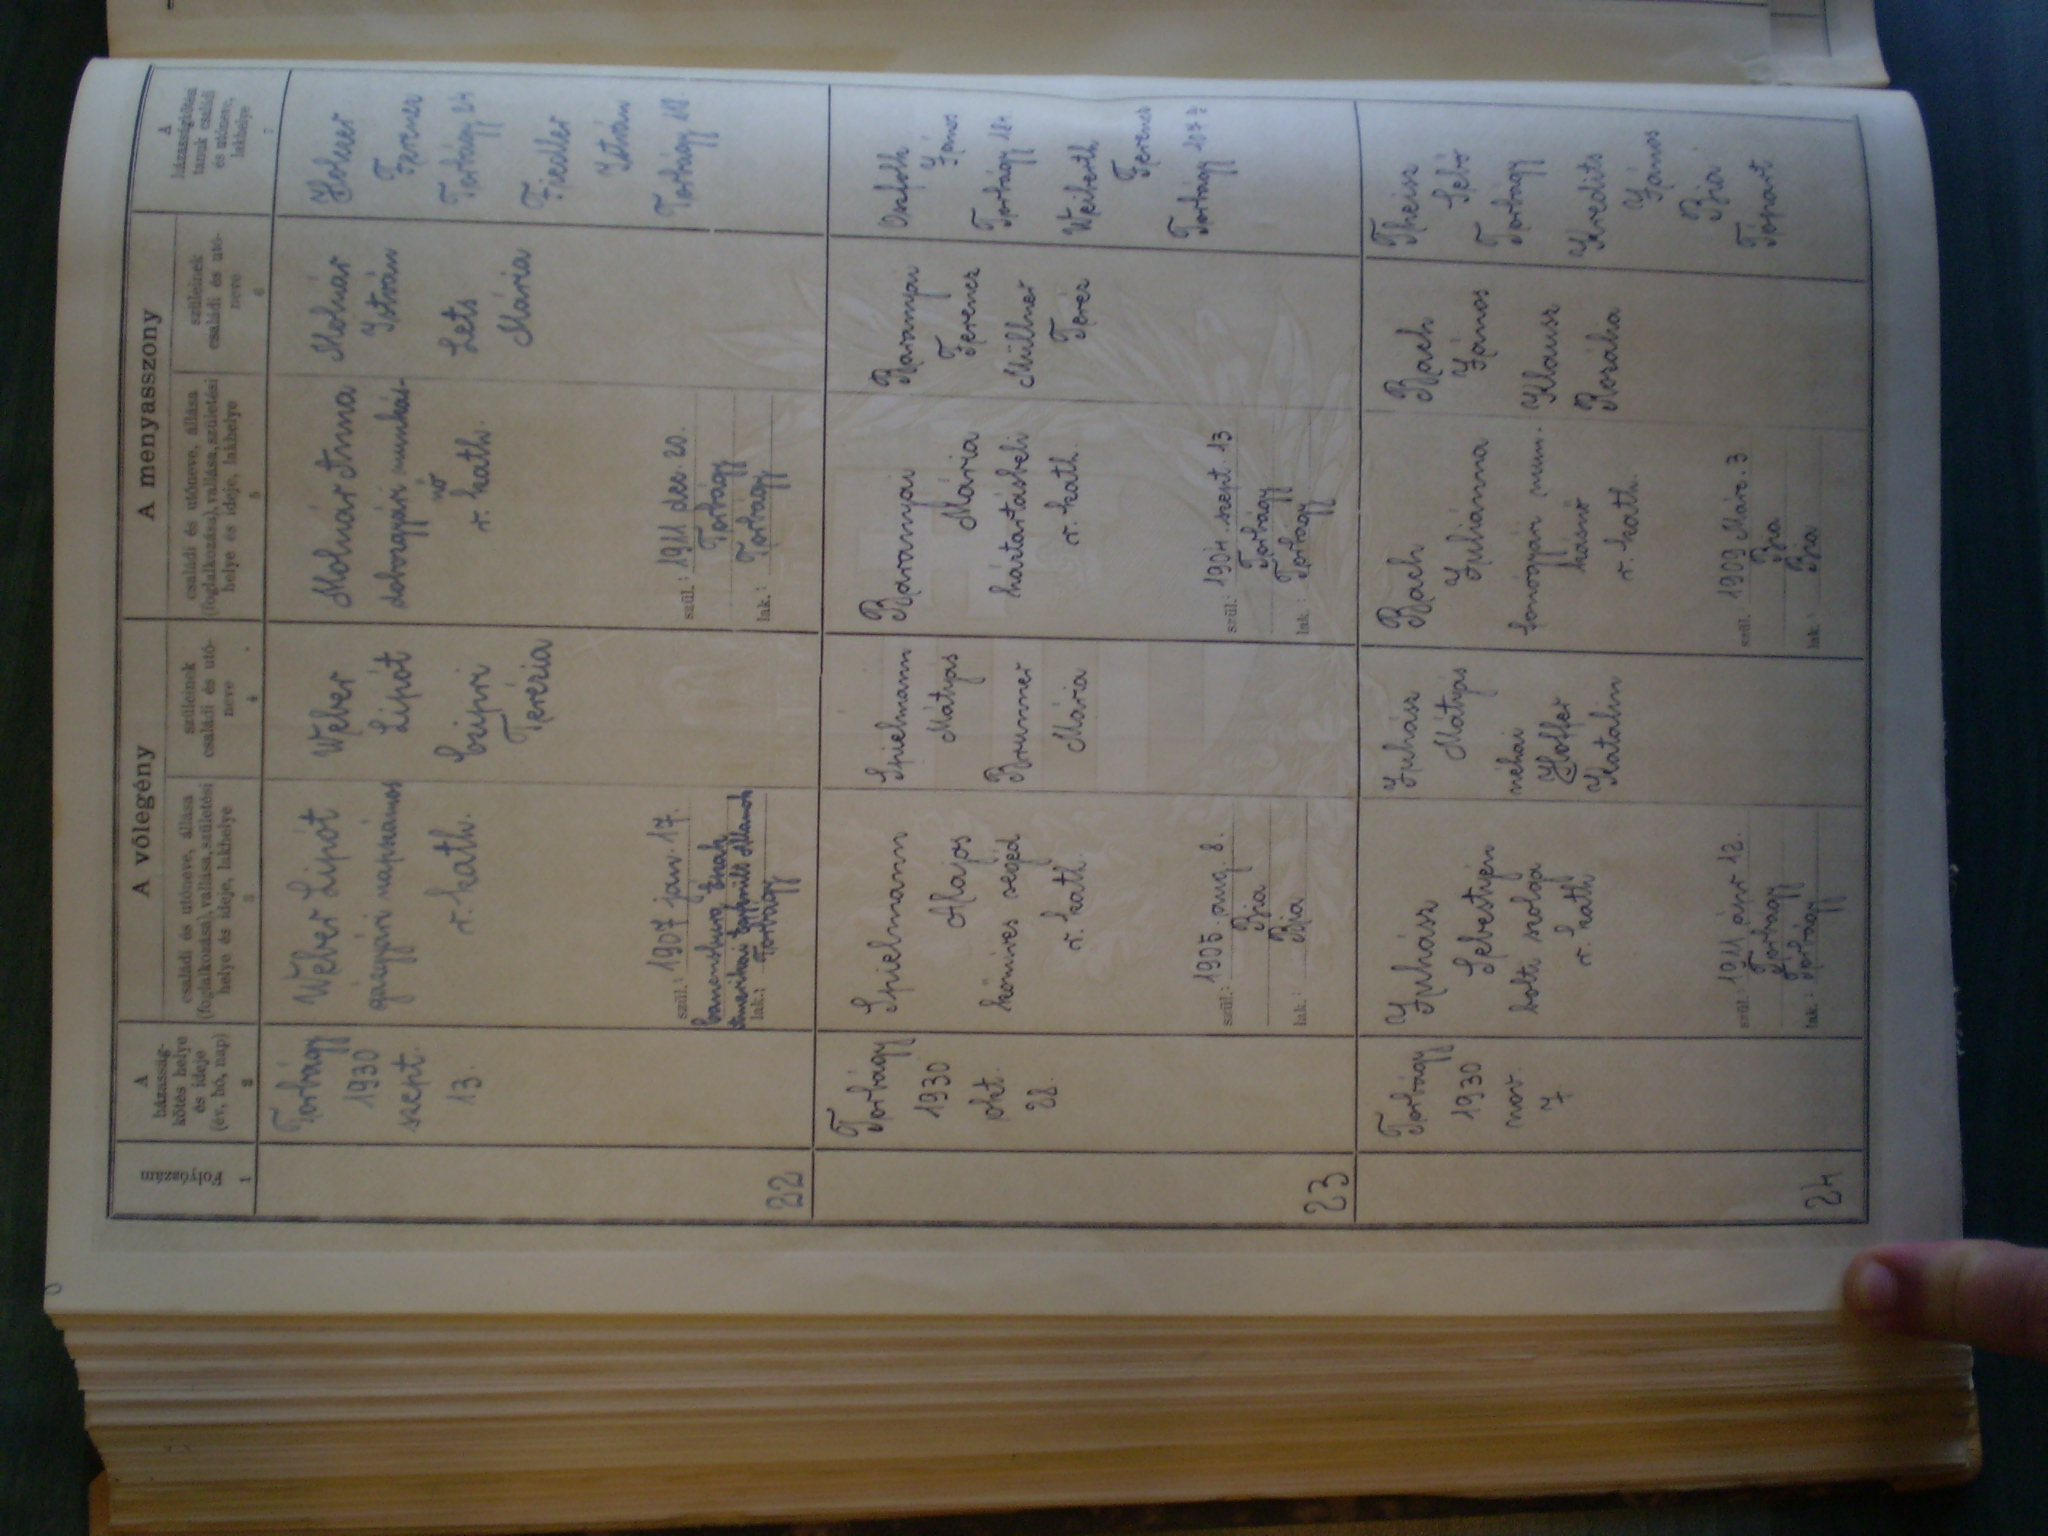 A vőlegény
A menyasszony
Folyószám
1
A
házasság-
kötés helye
és ideje
(év, hó, nap)
2
családi és utóneve, állása
(foglalkozása), vallása, születési
helye és ideje, lakhelye
3
szüleinek
családi és utó-
neve
4
családi és utóneve, állása
(foglalkozása), vallása, születési
helye és ideje, lakhelye
5
szüleinek
családi és utó-
neve
6
A
házasságkötési
tanuk családi
és utóneve,
lakhelye
7
22
Torbágy
1930
szept.
13.
Weber Lipót
gázgyári napszámos
r. kath.
szül.: 1907 jan. 17.
Amerikai Egyesült Államok
lak.: Torbágy
Weber
Lipót
Czipri
Terézia
Molnár Anna
dobozgyári munkás-
nő
r. kath.
szül.: 1911 dec. 20.
Torbágy
lak.: Torbágy
Molnár
István
Lets
Mária
Ferenc
Torbágy 24
Fiedler
István
Torbágy
23
Torbágy
1930
okt.
28.
Spielmann
Alajos
kőmíves segéd
r. kath.
szül.: 1905 aug. 8.
Bia
lak.: Bia
Spielmann
Mátyás
Brunner
Mária
Baranyai
Mária
háztartásbeli
r. kath.
szül.: 1904 szept. 13
Torbágy
lak.: Torbágy
Baranyai
Ferencz
Müllner
Teréz
János
Torbágy
Ferenc
Torbágy
24
Torbágy
1930
nov.
7
Juhász
Sebestyén
bolti szolga
r. kath
szül. 1911 ápr 12.
Torbágy
lak: Torbágy
Juhász
Mátyás
néhai
Hoffer
Katalin
Bach
Juliánna
fonógyári mun-
kásnő
r. kath.
szül. 1909 Márc. 3
Bia
lak: Bia
Bach
János
Klausz
Rozália
Theisz
Sebő
Torbágy
Kredits
János
Bia